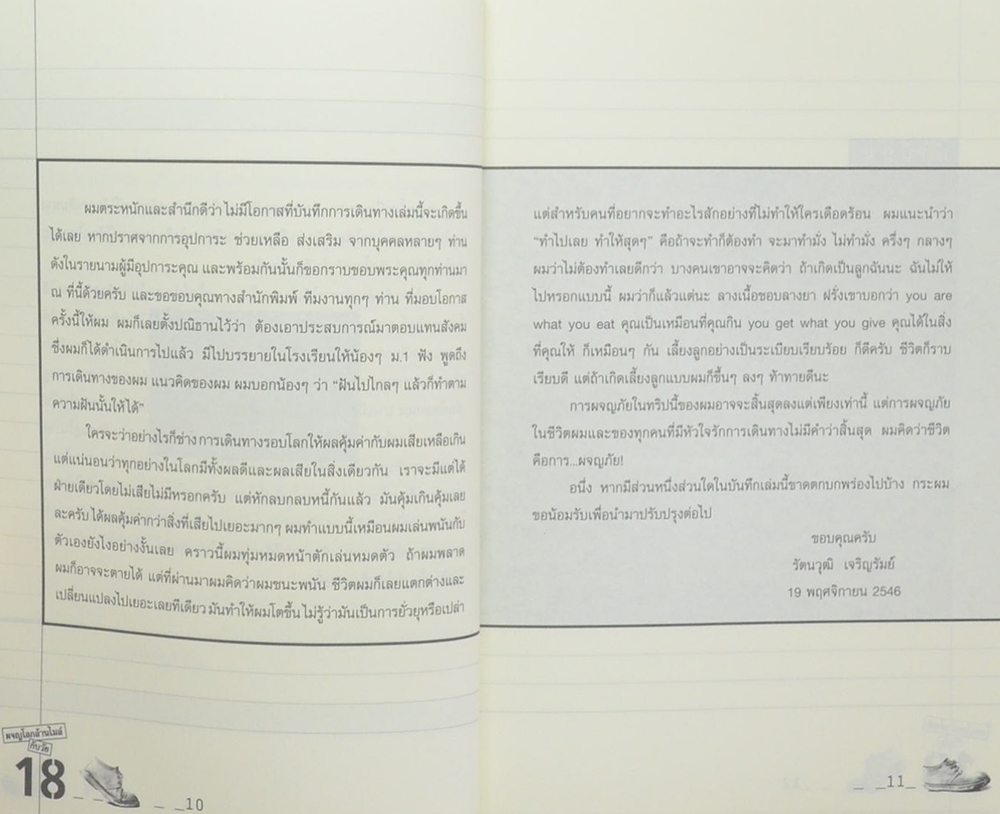 ผมตระหนักและสำนึกดีว่า ไม่มีโอกาสที่บันทึกการเดินทางเล่มนี้จะเกิดขึ้น
ได้เลย หากปราศจากการอุปการะ ช่วยเหลือ ส่งเสริม จากบุคคลหลายๆ ท่าน
ดังในรายนามผู้มีอุปการะคุณ และพร้อมกันนั้นก็ขอกราบขอบพระคุณทุกท่านมา
ณ ที่นี้ด้วยครับ และขอขอบคุณทางสำนักพิมพ์ ทีมงานทุกๆ ท่าน ที่มอบโอกาส
ครั้งนี้ให้ผม ผมก็เลยตั้งปณิธานไว้ว่า ต้องเอาประสบการณ์มาตอบแทนสังคม
ซึ่งผมก็ได้ดำเนินการไปแล้ว มีไปบรรยายในโรงเรียนให้น้องๆ ม.1 ฟัง พูดถึง
การเดินทางของผม แนวคิดของผม ผมบอกน้องๆ ว่า “ฝันไปไกลๆ แล้วก็ทำตาม
ความฝันนั้นให้ได้”
ใครจะว่าอย่างไรก็ช่าง การเดินทางรอบโลกให้ผลคุ้มค่ากับผมเสียเหลือเกิน
แต่แน่นอนว่าทุกอย่างในโลกมีทั้งผลดีและผลเสียในสิ่งเดียวกัน เราจะมีแต่ได้
ฝ่ายเดียวโดยไม่เสียไม่มีหรอกครับ แต่หักลบกลบหนี้กันแล้ว มันคุ้มเกินคุ้มเลย
ละครับ ได้ผลคุ้มค่ากว่าสิ่งที่เสียไปเยอะมากๆ ผมทำแบบนี้เหมือนผมเล่นพนันกับ
ตัวเองยังไงอย่างงั้นเลย คราวนี้ผมทุ่มหมดหน้าตักเล่นหมดตัว ถ้าผมพลาด
ผมก็อาจจะตายได้ แต่ที่ผ่านมาผมคิดว่าผมชนะพนัน ชีวิตผมก็เลยแตกต่างและ
เปลี่ยนแปลงไปเยอะเลยทีเดียว มันทำให้ผมโตขึ้น ไม่รู้ว่ามันเป็นการยั่วยุหรือเปล่า
ผจญโลกล้านไมล์
กับวัย
18
10
แต่สำหรับคนที่อยากจะทำอะไรสักอย่างที่ไม่ทำให้ใครเดือดร้อน ผมแนะนำว่า
“ทำไปเลย ทำให้สุดๆ” คือถ้าจะทำก็ต้องทำ จะมาทำมั่ง ไม่ทำมั่ง ครึ่งๆ กลางๆ
ผมว่าไม่ต้องทำเลยดีกว่า บางคนเขาอาจจะคิดว่า ถ้าเกิดเป็นลูกฉันนะ ฉันไม่ให้
ไปหรอกแบบนี้ ผมว่าก็แล้วแต่นะ ลางเนื้อชอบลางยา ฝรั่งเขาบอกว่า you are
what you eat คุณเป็นเหมือนที่คุณกิน you get what you give คุณได้ในสิ่ง
ที่คุณให้ ก็เหมือนๆ กัน เลี้ยงลูกอย่างเป็นระเบียบเรียบร้อย ก็ดีครับ ชีวิตก็ราบ
เรียบดี แต่ถ้าเกิดเลี้ยงลูกแบบผมก็ขึ้นๆ ลงๆ ท้าทายดีนะ
การผจญภัยในทริปนี้ของผมอาจจะสิ้นสุดลงแต่เพียงเท่านี้ แต่การผจญภัย
ในชีวิตผมและของทุกคนที่มีหัวใจรักการเดินทางไม่มีคำว่าสิ้นสุด ผมคิดว่าชีวิต
คือการ...ผจญภัย!
อนึ่ง หากมีส่วนหนึ่งส่วนใดในบันทึกเล่มนี้ขาดตกบกพร่องไปบ้าง กระผม
ขอน้อมรับเพื่อนำมาปรับปรุงต่อไป
ขอบคุณครับ
รัตนวุฒิ เจริญรัมย์
19 พฤศจิกายน 2546
11